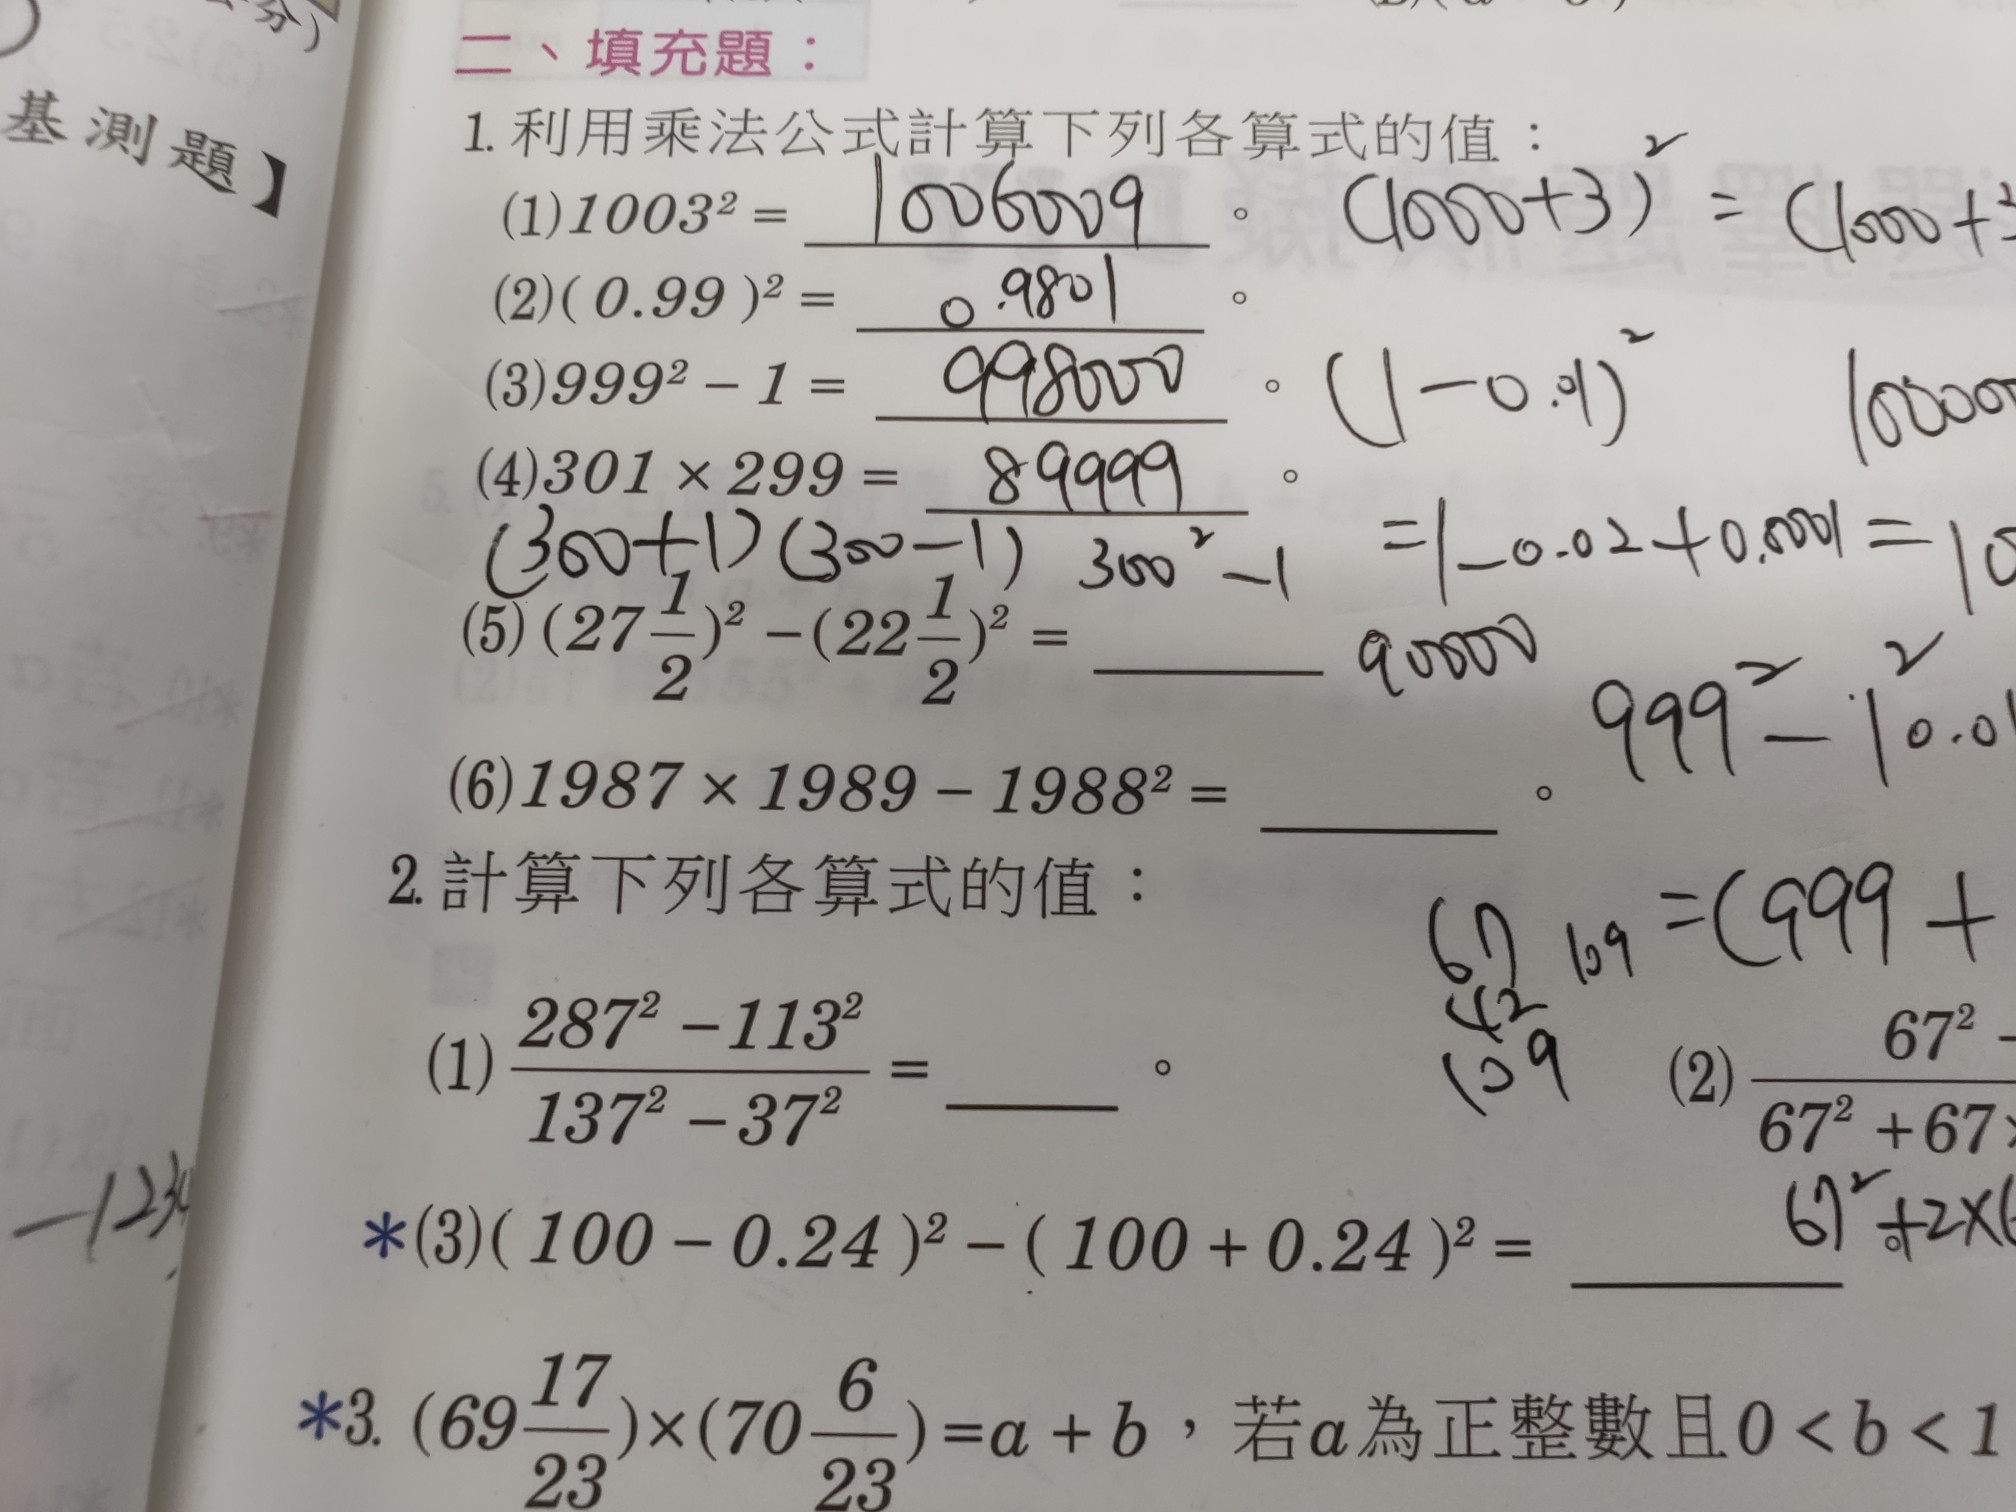 二、填充題：
基測題】
1. 利用乘法公式計算下列各算式的值：
(1)1003² = 1006009 。 (1000+3)² = (1000+3
(2)(0.99)² = 0.9801 。
(3)999² − 1 = 998000 。 (1−0.01)² 100000
(4)301 × 299 = 89999 。
(300+1)(300−1) 300²−1 =1−0.02+0.0001=
(5)(27 1/2)² − (22 1/2)² = ____ 90000
999² − 1²
0.01
(6)1987 × 1989 − 1988² = ____ 。
2. 計算下列各算式的值：
67 109 =(999+
42
109
(1) (287² − 113²)/(137² − 37²) = ____ 。
(2) 67² −
67² + 67×
67²+2×(
−123
*(3)(100 − 0.24)² − (100 + 0.24)² = ____ 。
*3. (69 17/23)×(70 6/23)=a + b，若a為正整數且0 < b < 1